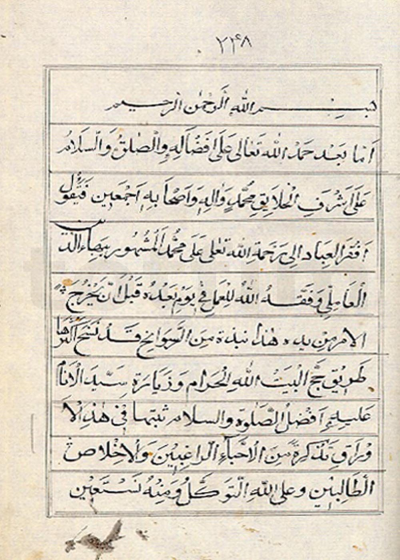 ۲۴۸
بسم الله الرحمن الرحيم
اما بعد حمد الله تعالى على افضاله والصلوة والسلام
على اشرف الخلايق محمد واله واصحابه اجمعين فيقول
افقر العباد الى رحمة الله تعلى على محمد المشهور ببهاء الد
العاملى وفقه الله للعمل فى يومه لغده قبل ان يخرج
الامر من يده هذه نبذة من السوانح قد نسخ اكثرها
طريق حج البيت الله الحرام وزيارة سيد الانام
عليه افضل الصلوة والسلام ثبتها فى هذه الا
وراق تذكرة من الاخباء الراغبين والاخلاص
الطالبين وعلى الله التوكل ومنه نستعين